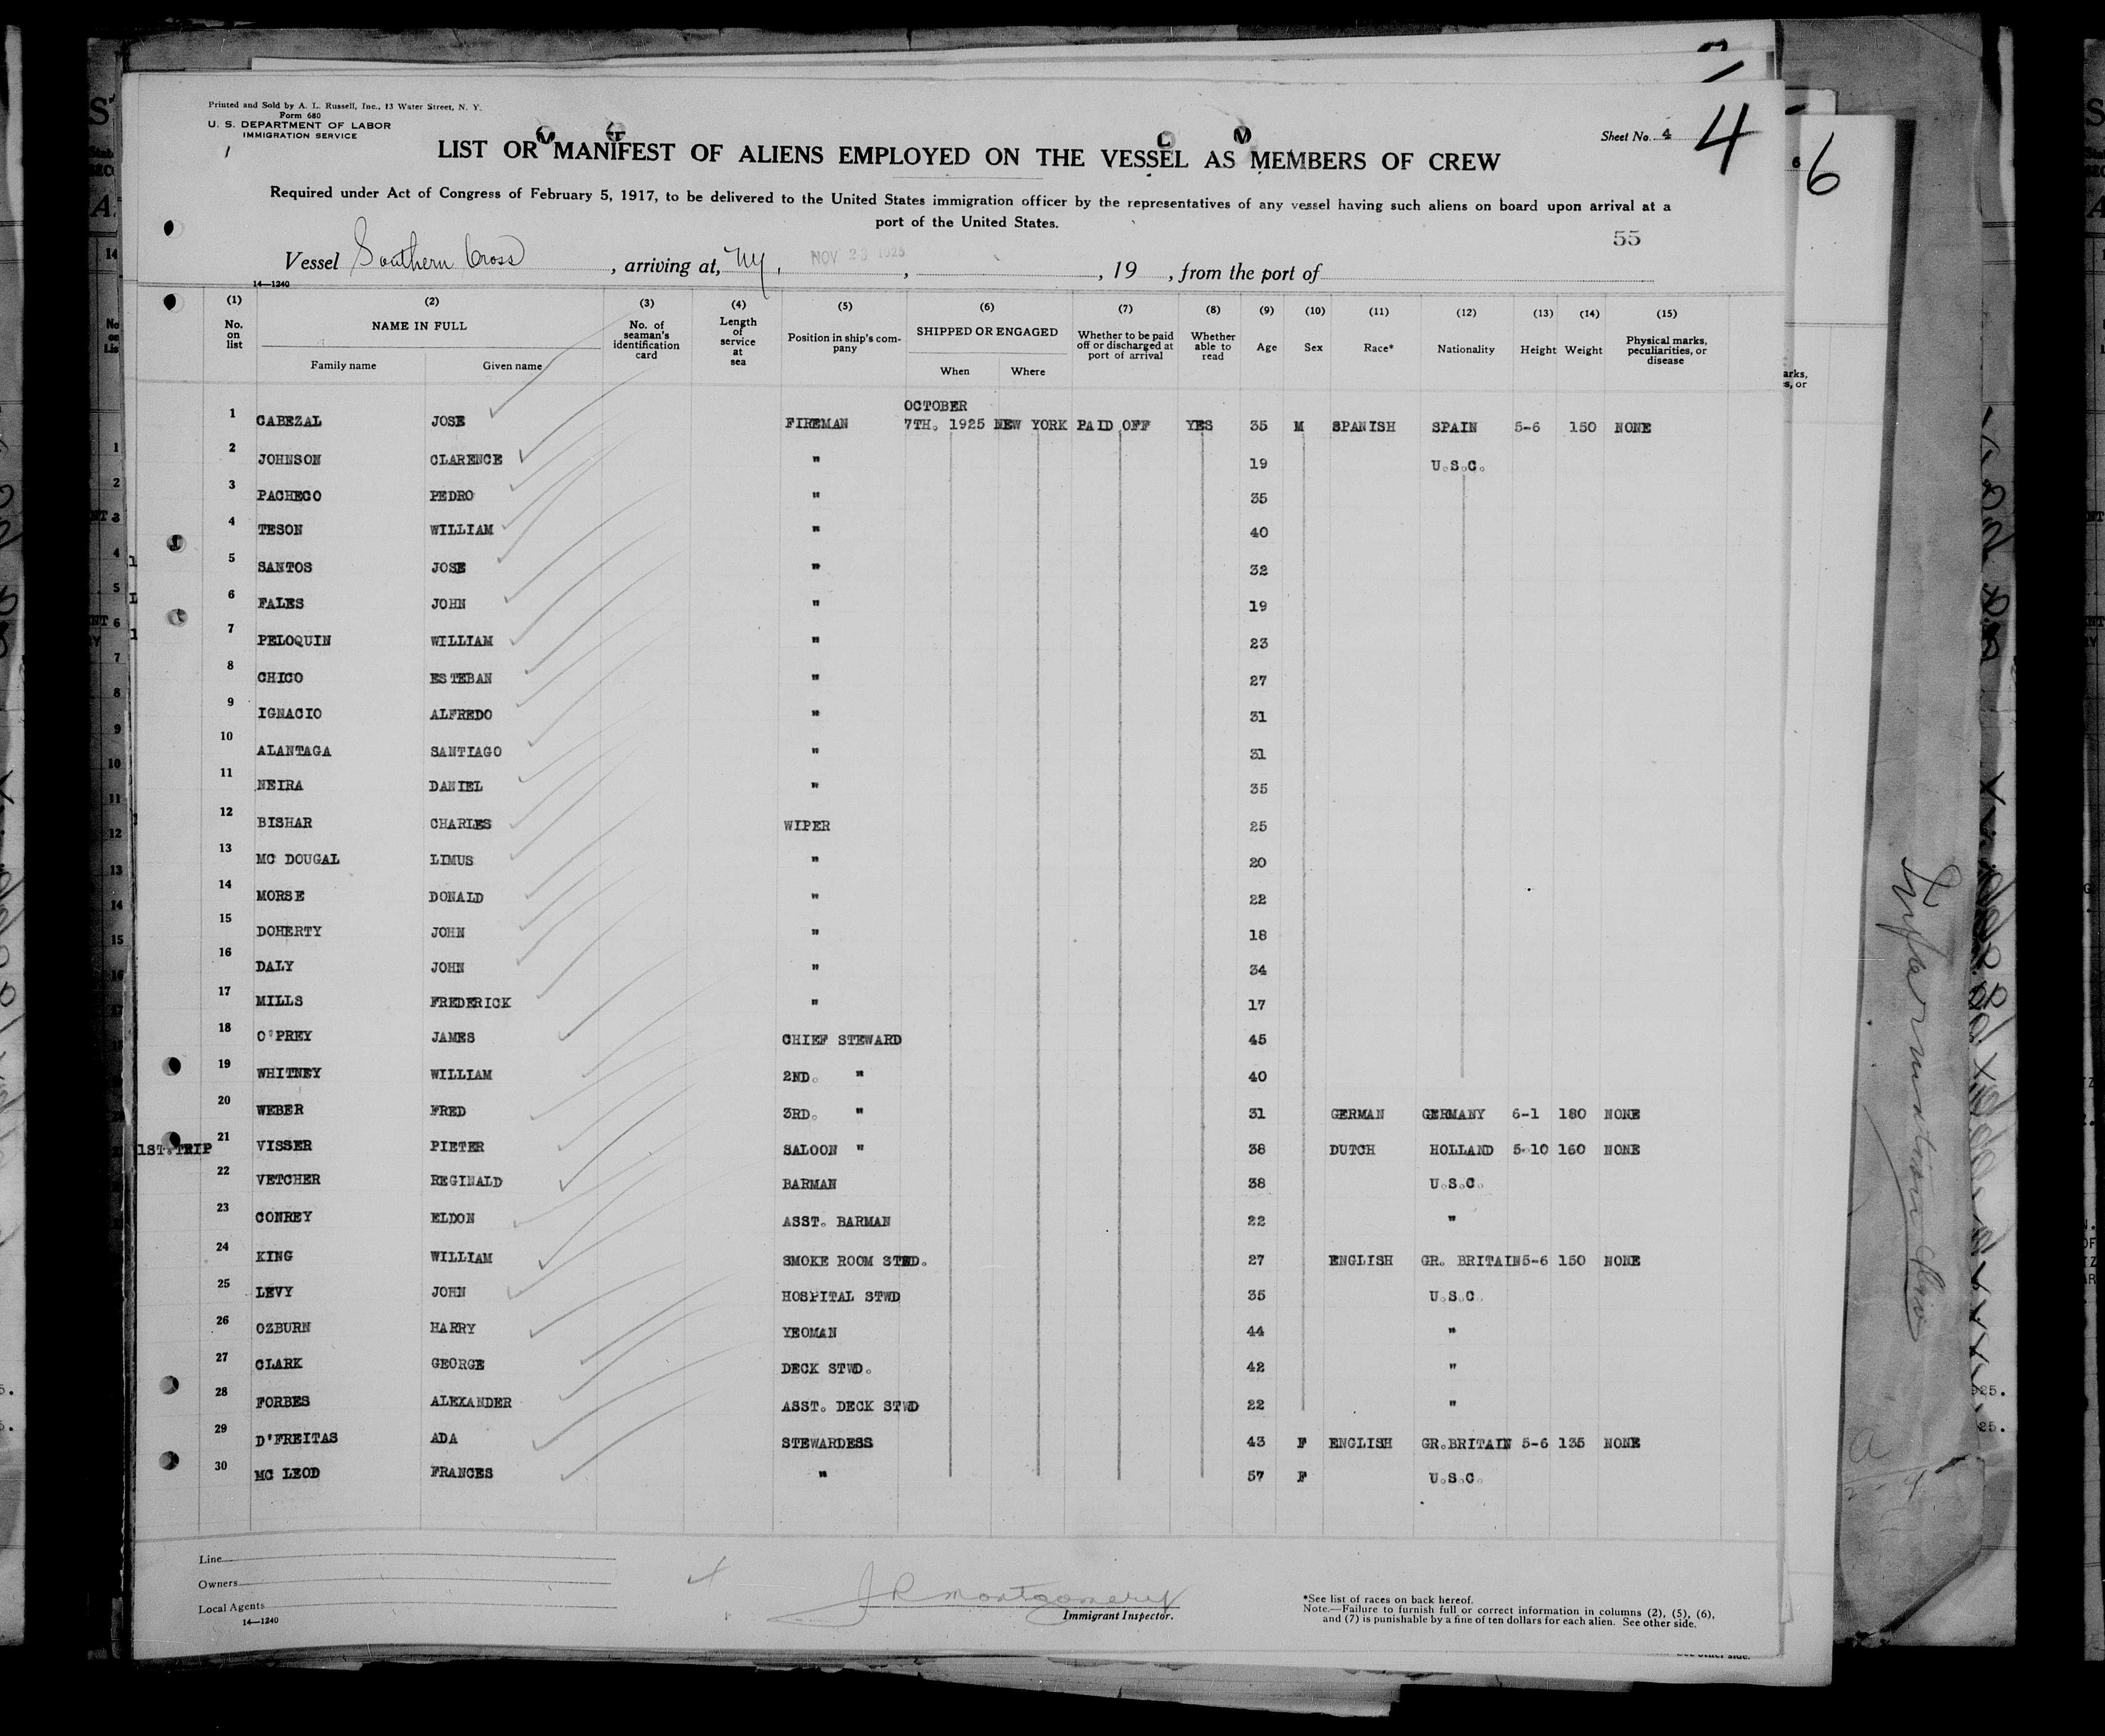 Printed and Sold by A. L. Russell, Inc., 13 Water Street, N. Y.
Form 680
U. S. DEPARTMENT OF LABOR
IMMIGRATION SERVICE
Sheet No. 4
4
6
LIST OR MANIFEST OF ALIENS EMPLOYED ON THE VESSEL AS MEMBERS OF CREW
Required under Act of Congress of February 5, 1917, to be delivered to the United States immigration officer by the representatives of any vessel having such aliens on board upon arrival at a
port of the United States.
55
Vessel Southern Cross, arriving at, NY, NOV 23 1925, , 19 , from the port of
14—1240
(1) (2) (3) (4) (5) (6) (7) (8) (9) (10) (11) (12) (13) (14) (15)
No. on list NAME IN FULL Family name Given name No. of seaman's identification card Length of service at sea Position in ship's company SHIPPED OR ENGAGED When Where Whether to be paid off or discharged at port of arrival Whether able to read Age Sex Race* Nationality Height Weight Physical marks, peculiarities, or disease
OCTOBER
1 CABEZAL JOSE FIREMAN 7TH. 1925 NEW YORK PAID OFF YES 35 M SPANISH SPAIN 5-6 150 NONE
2 JOHNSON CLARENCE " 19 U.S.C.
3 PACHECO PEDRO " 35
4 TESON WILLIAM " 40
5 SANTOS JOSE " 32
6 FALES JOHN " 19
7 PELOQUIN WILLIAM " 23
8 CHICO ESTEBAN " 27
9 IGNACIO ALFREDO " 31
10 ALANTAGA SANTIAGO " 31
11 NEIRA DANIEL " 35
12 BISHAR CHARLES WIPER 25
13 MC DOUGAL LIMUS " 20
14 MORSE DONALD " 22
15 DOHERTY JOHN " 18
16 DALY JOHN " 34
17 MILLS FREDERICK " 17
18 O'PREY JAMES CHIEF STEWARD 45
19 WHITNEY WILLIAM 2ND. " 40
20 WEBER FRED 3RD. " 31 GERMAN GERMANY 6-1 180 NONE
1ST.TRIP 21 VISSER PIETER SALOON " 38 DUTCH HOLLAND 5-10 160 NONE
22 VETCHER REGINALD BARMAN 38 U.S.C.
23 CONREY ELDON ASST. BARMAN 22 "
24 KING WILLIAM SMOKE ROOM STWD. 27 ENGLISH GR. BRITAIN 5-6 150 NONE
25 LEVY JOHN HOSPITAL STWD 35 U.S.C.
26 OZBURN HARRY YEOMAN 44 "
27 CLARK GEORGE DECK STWD. 42 "
28 FORBES ALEXANDER ASST. DECK STWD 22 "
29 D'FREITAS ADA STEWARDESS 43 F ENGLISH GR.BRITAIN 5-6 135 NONE
30 MC LEOD FRANCES " 57 F U.S.C.
Line
Owners
Local Agents
14—1240
J R Montgomery
Immigrant Inspector.
*See list of races on back hereof.
Note.—Failure to furnish full or correct information in columns (2), (5), (6),
and (7) is punishable by a fine of ten dollars for each alien. See other side.